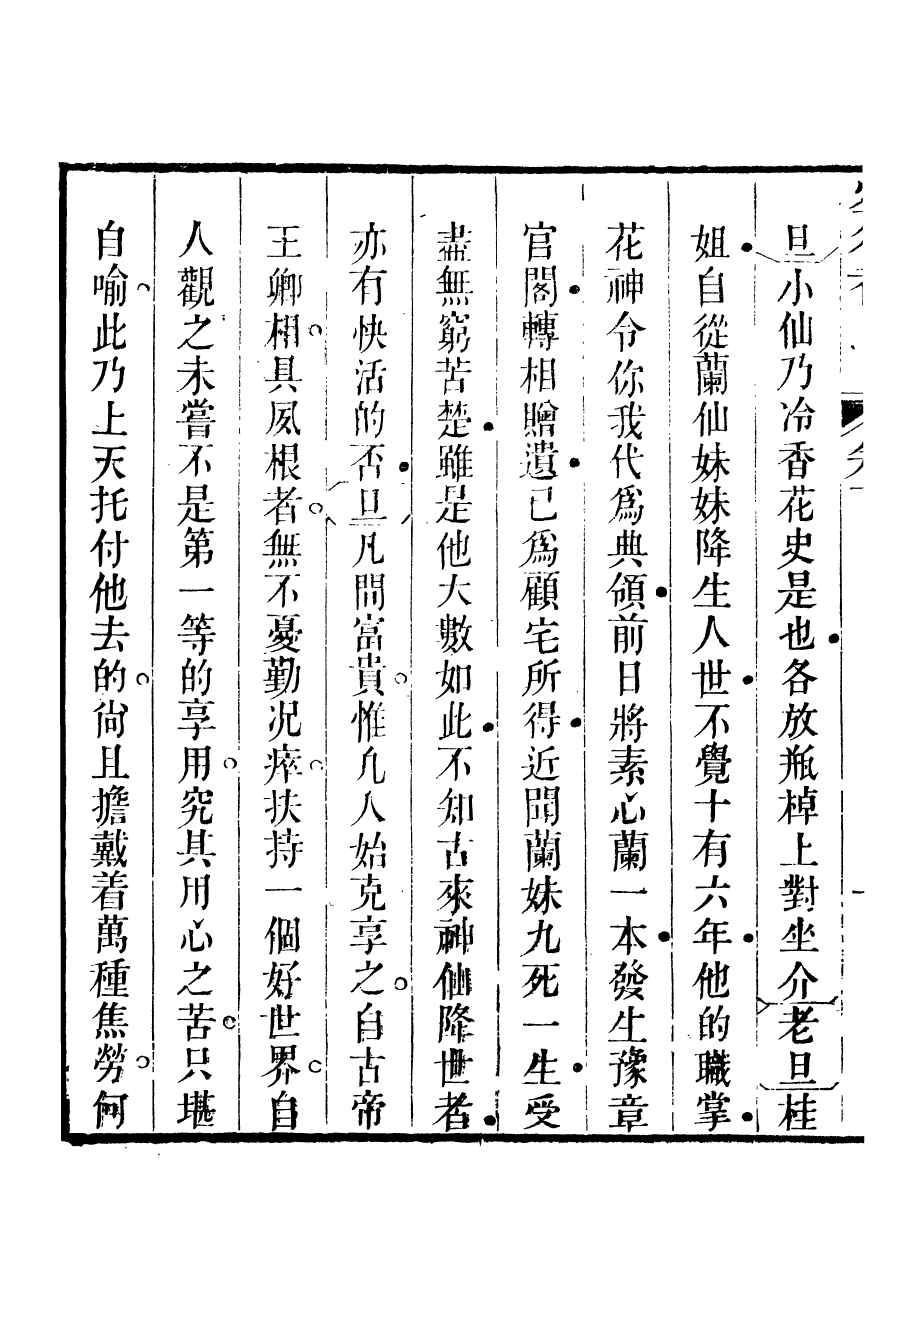 旦小仙乃冷香花史是也各放瓶棹上對坐介老旦桂
姐自從蘭仙妹妹降生人世不覺十有六年他的職掌
花神令你我代爲典領前日將素心蘭一本發生豫章
官閣轉相贈遺已爲顧宅所得近聞蘭妹九死一生受
盡無窮苦楚雖是他大數如此不知古來神仙降世者
亦有快活的否旦凡間富貴惟凡人始克享之自古帝
王卿相具夙根者無不憂勤况瘁扶持一個好世界自
人觀之未嘗不是第一等的享用究其用心之苦只堪
自喻此乃上天托付他去的尙且擔戴着萬種焦勞何